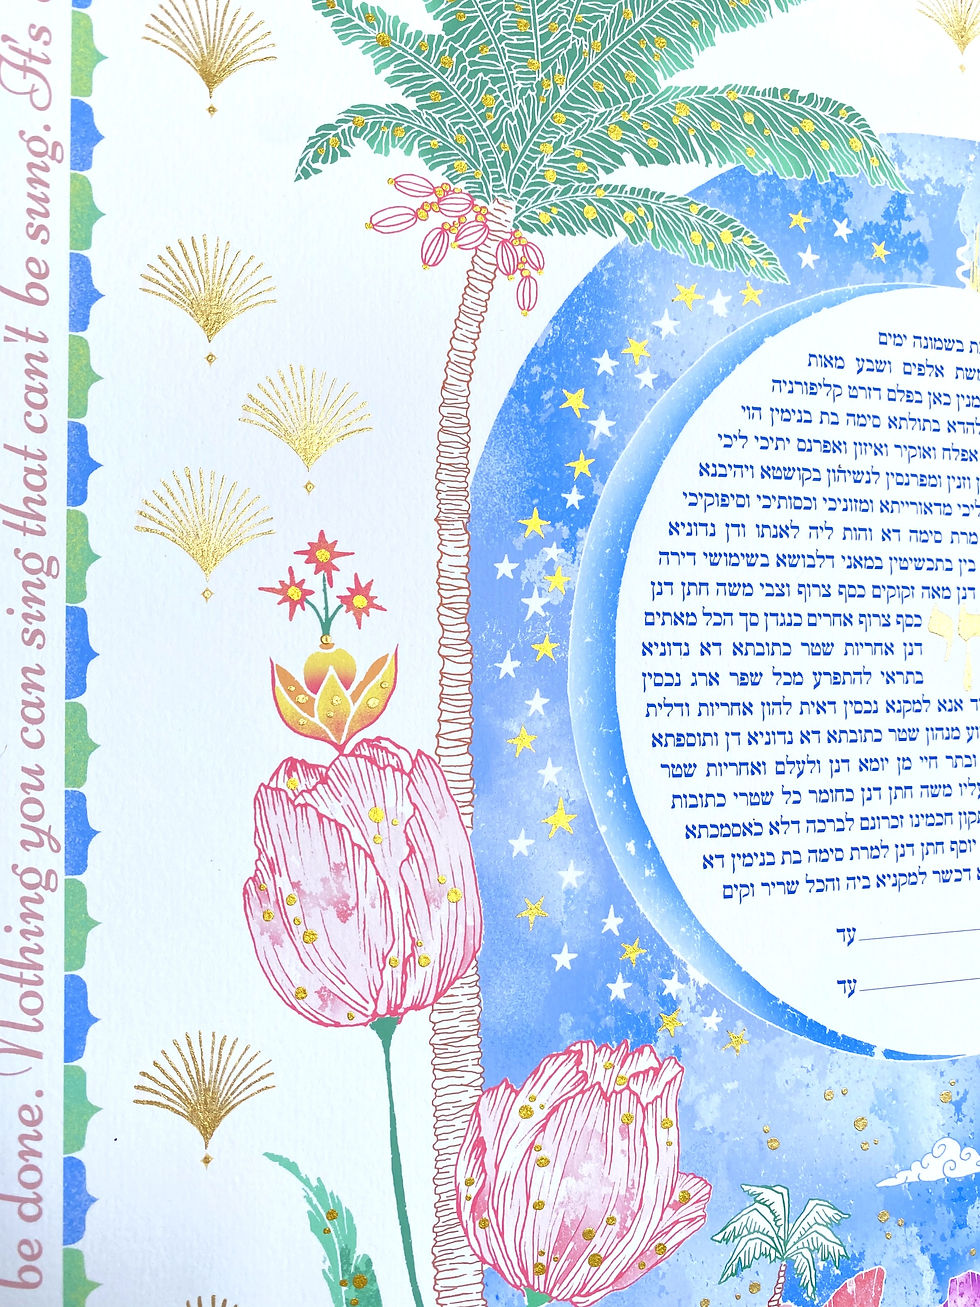 be done. Nothing you can sing that can't be sung. It's
בשמונה ימים
אלפים ושבע מאות
כאן בפלם דזרט קליפורניה
בתולתא סימה בת בנימין הוי
אפלח ואוקיר ואיזון ואפרנס יתיכי ליכי
וזנין ומפרנסין לנשיהון בקושטא ויהיבנא
מדאורייתא ומזוניכי וכסותיכי וסיפוקיכי
מרת סימה דא והות ליה לאנתו ודן נדוניא
בין בתכשיטין במאני דלבושא בשימושי דירה
דנן מאה זקוקים כסף צרוף וצבי משה חתן דנן
כסף צרוף אחרים כנגדן סך הכל מאתים
דנן אחריות שטר כתובתא דא נדוניא
בתראי להתפרע מכל שפר ארג נכסין
אנא למקנא נכסין דאית להון אחריות ודלית
מנהון שטר כתובתא דא נדוניא דן ותוספתא
ובתר חיי מן יומא דנן ולעלם ואחריות שטר
משה חתן דנן כחומר כל שטרי כתובות
חכמינו זכרונם לברכה דלא כאסמכתא
יוסף חתן דנן למרת סימה בת בנימין דא
דכשר למקניא ביה והכל שריר וקים
עד
עד